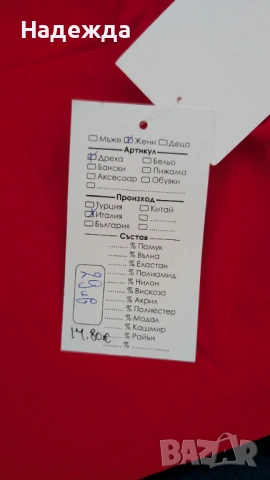 Надежда
Мъже Жени Деца
Артикул
Дреха Бельо
Бански Пижама
Аксесоар Обувки
Произход
Турция Китай
Италия
България
Състав
........ % Памук
........ % Вълна
........ % Еластан
........ % Полиамид
........ % Нилон
........ % Вискоза
........ % Акрил
........ % Полиестер
........ % Модал
........ % Кашмир
........ % Райън
........ %
29лв
14.80€
BAZAR.BG